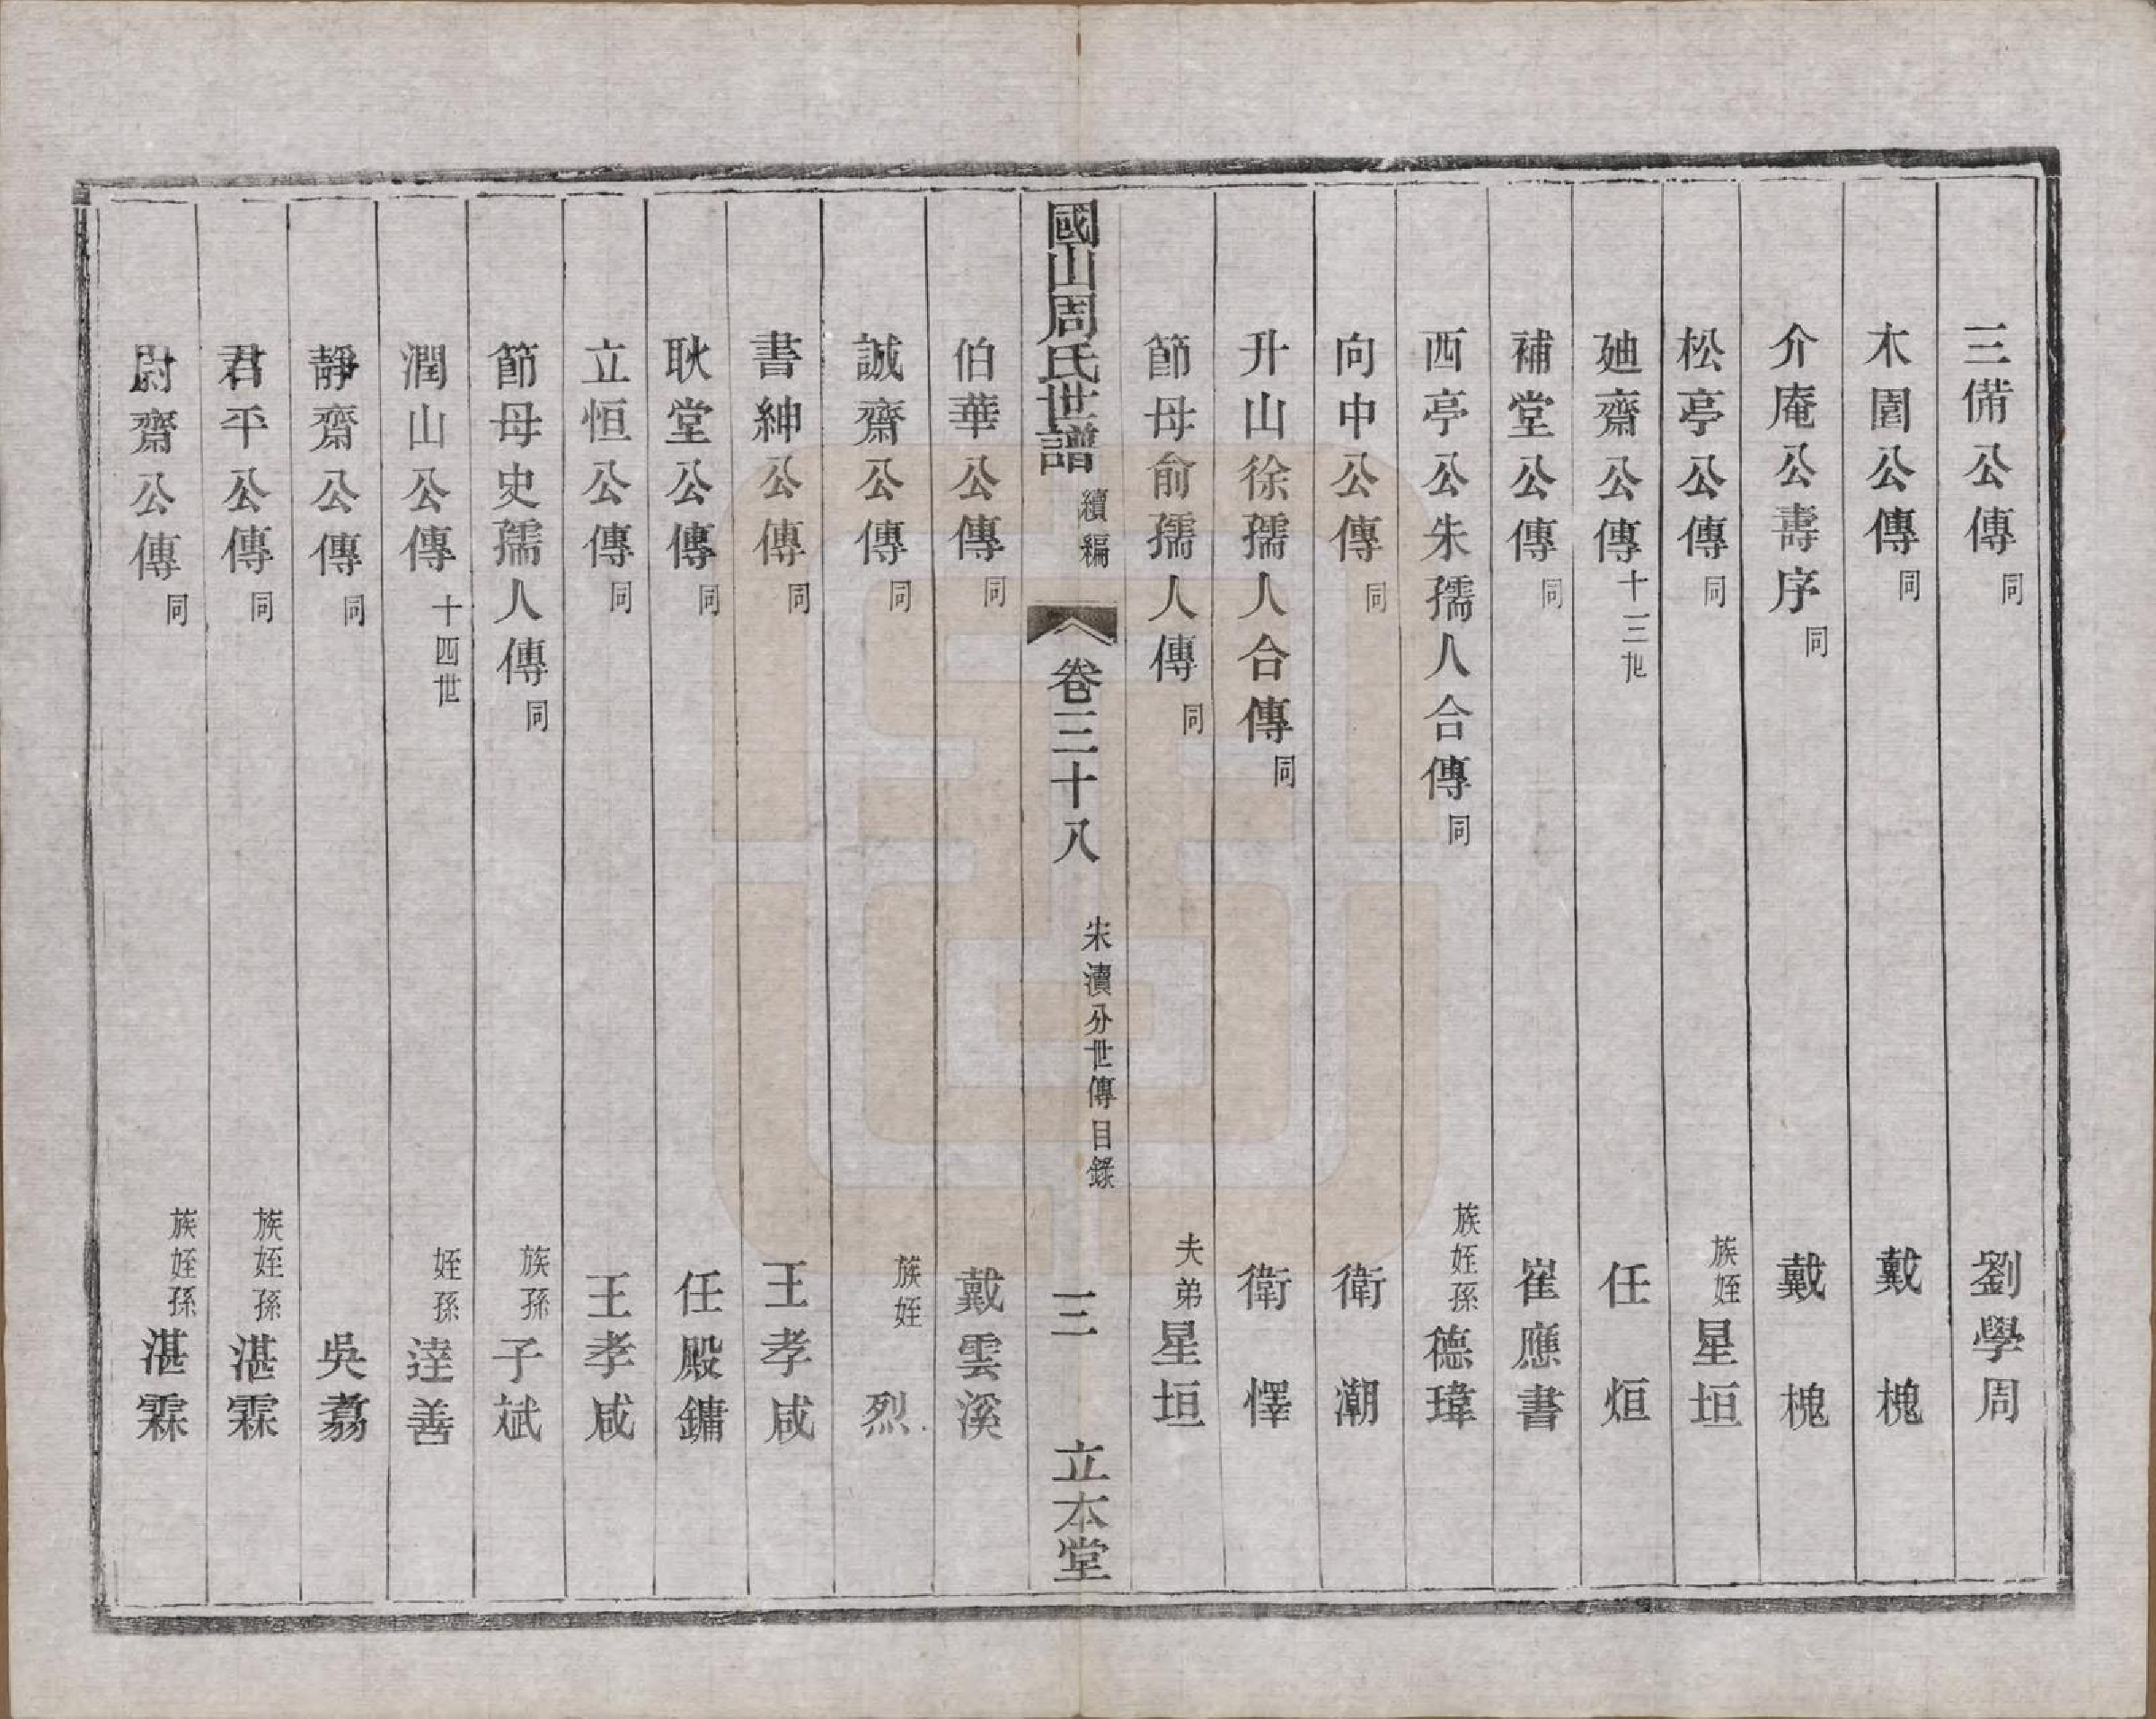 三備公傳同 劉學周
木園公傳同 戴槐
介庵公壽序同 戴槐
松亭公傳同 族姪星垣
廸齋公傳十三世 任烜
補堂公傳同 崔應書
西亭公朱孺人合傳同 族姪孫德瑋
向中公傳同 衛潮
升山徐孺人合傳同 衛懌
節母俞孺人傳同 夫弟星垣
國山周氏世譜 續編 卷三十八 朱瀆分世傳目錄 三 立本堂
伯華公傳同 戴雲溪
誠齋公傳同 族姪烈
書紳公傳同 王孝咸
耿堂公傳同 任殿鏞
立恒公傳同 王孝咸
節母史孺人傳同 族孫子斌
潤山公傳十四世 姪孫達善
靜齋公傳同 吳翥
君平公傳同 族姪孫湛霖
尉齋公傳同 族姪孫湛霖